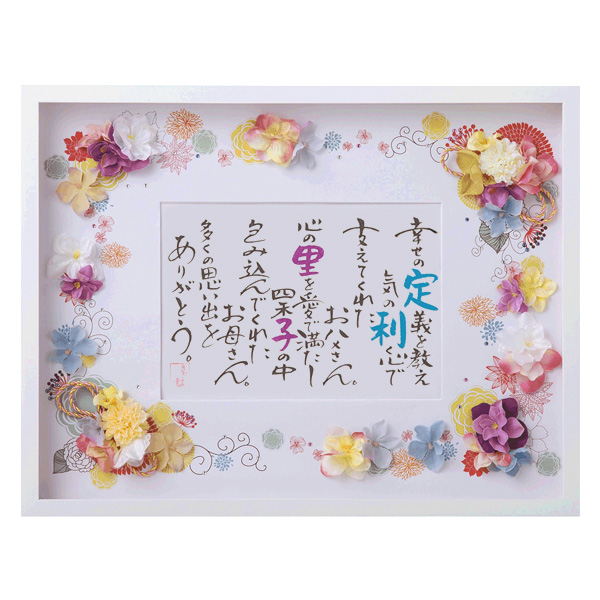 幸せの定義を教え
気の利く心で
支えてくれた
お父さん。
心の里を愛で満たし
子の中
包み込んでくれた
お母さん。
多くの思い出を
ありがとう。